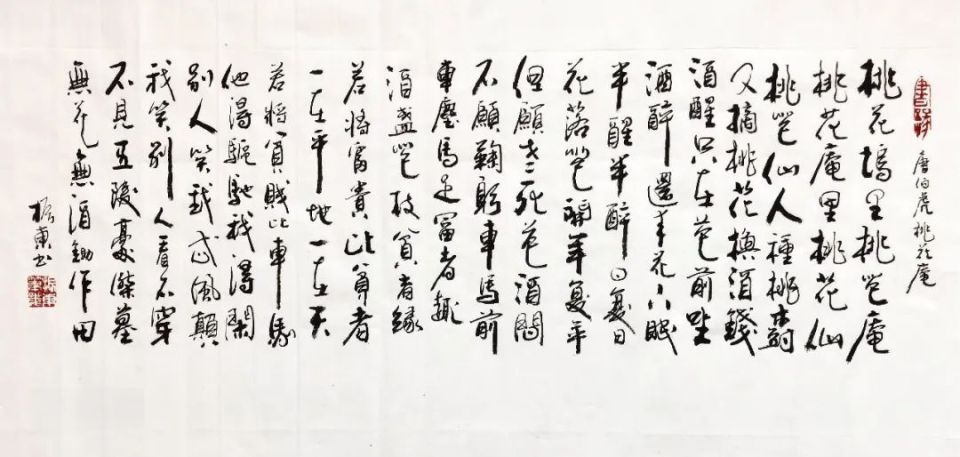 唐伯虎桃花庵
桃花塢里桃花庵
桃花庵里桃花仙
桃花仙人種桃樹
又摘桃花換酒錢
酒醒只在花前坐
酒醉還來花下眠
半醒半醉日復日
花落花開年復年
但願老死花酒間
不願鞠躬車馬前
車塵馬足富者趣
酒盞花枝貧者緣
若將富貴比貧者
一在平地一在天
若將貧賤比車馬
他得驅馳我得閑
別人笑我忒風顛
我笑別人看不穿
不見五陵豪傑墓
無花無酒鋤作田
振東书